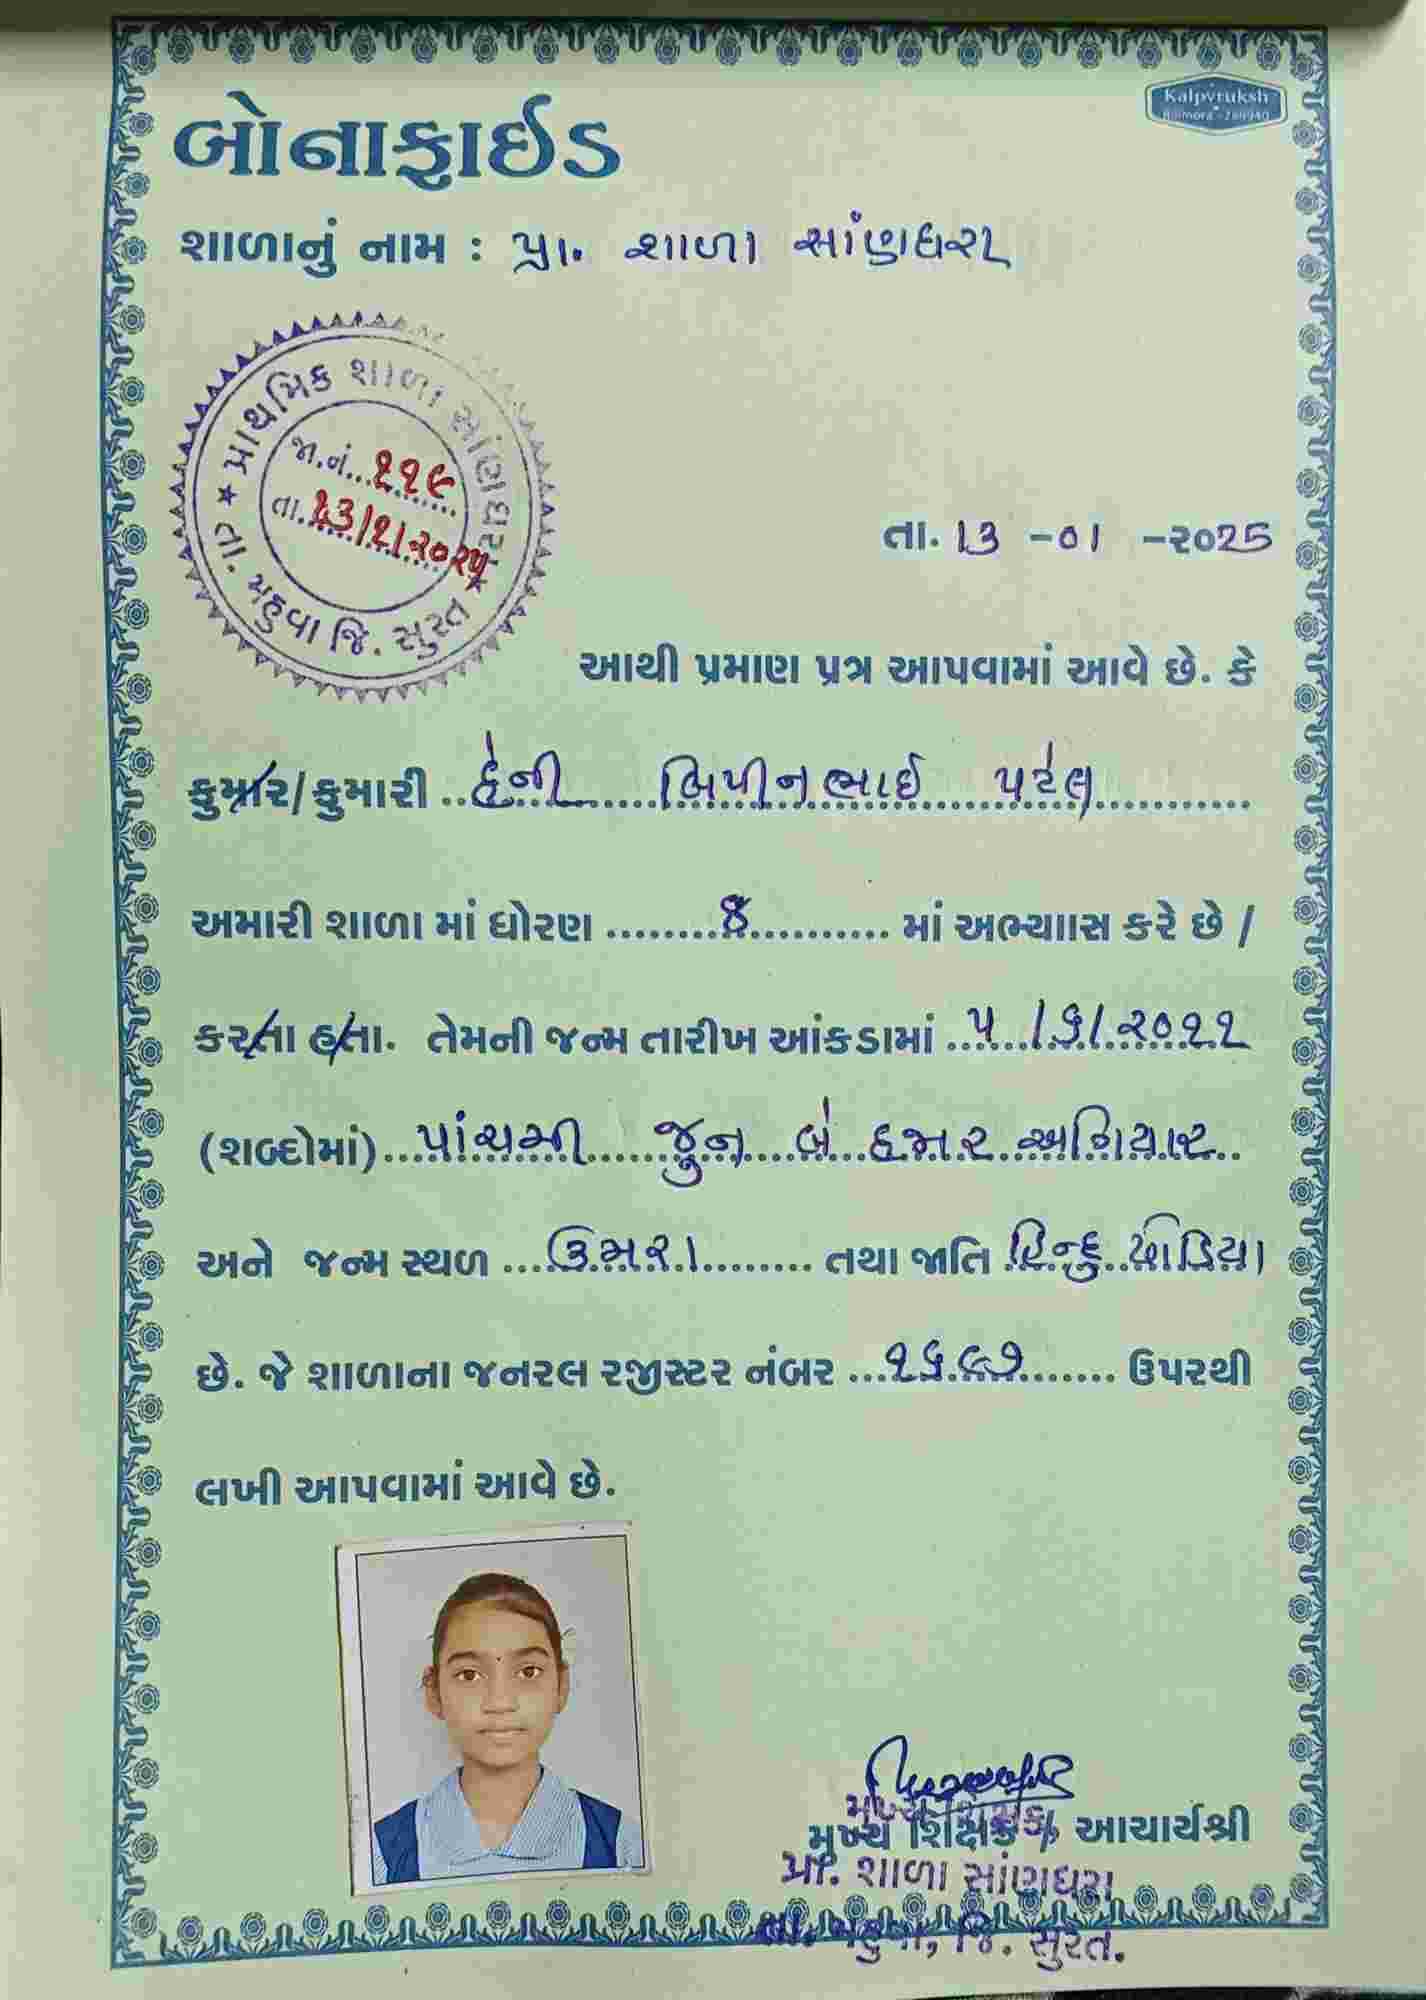 Kalpvruksh
બોનાફાઈડ
શાળાનું નામ : પ્રા. શાળા સાંણધરા
★ પ્રાથમિક શાળા સાંણધરા ★
તા. મહુવા જિ. સુરત
જા.નં... ૧૧૯
તા. ૧૩/૧/૨૦૨૫
તા. 13 -01 -૨૦25
આથી પ્રમાણ પત્ર આપવામાં આવે છે. કે
કુમાર/કુમારી .. હેની બિપીનભાઈ પટેલ
અમારી શાળા માં ધોરણ ........ 8 .......... માં અભ્યાસ કરે છે /
કરતા હતા. તેમની જન્મ તારીખ આંકડામાં .. ૫ /૬/ ૨૦૧૧
(શબ્દોમાં) ... પાંચમી જુન બે હજાર અગિયાર ..
અને જન્મ સ્થળ .... ઉમરા ........ તથા જાતિ હિન્દુ ધોડિયા
છે. જે શાળાના જનરલ રજીસ્ટર નંબર ... ૧૬૯૭ ....... ઉપરથી
લખી આપવામાં આવે છે.
મુખ્ય શિક્ષક
મુખ્ય શિક્ષક / આચાર્યશ્રી
પ્રા. શાળા સાંણધરા
તા. મહુવા, જિ. સુરત.